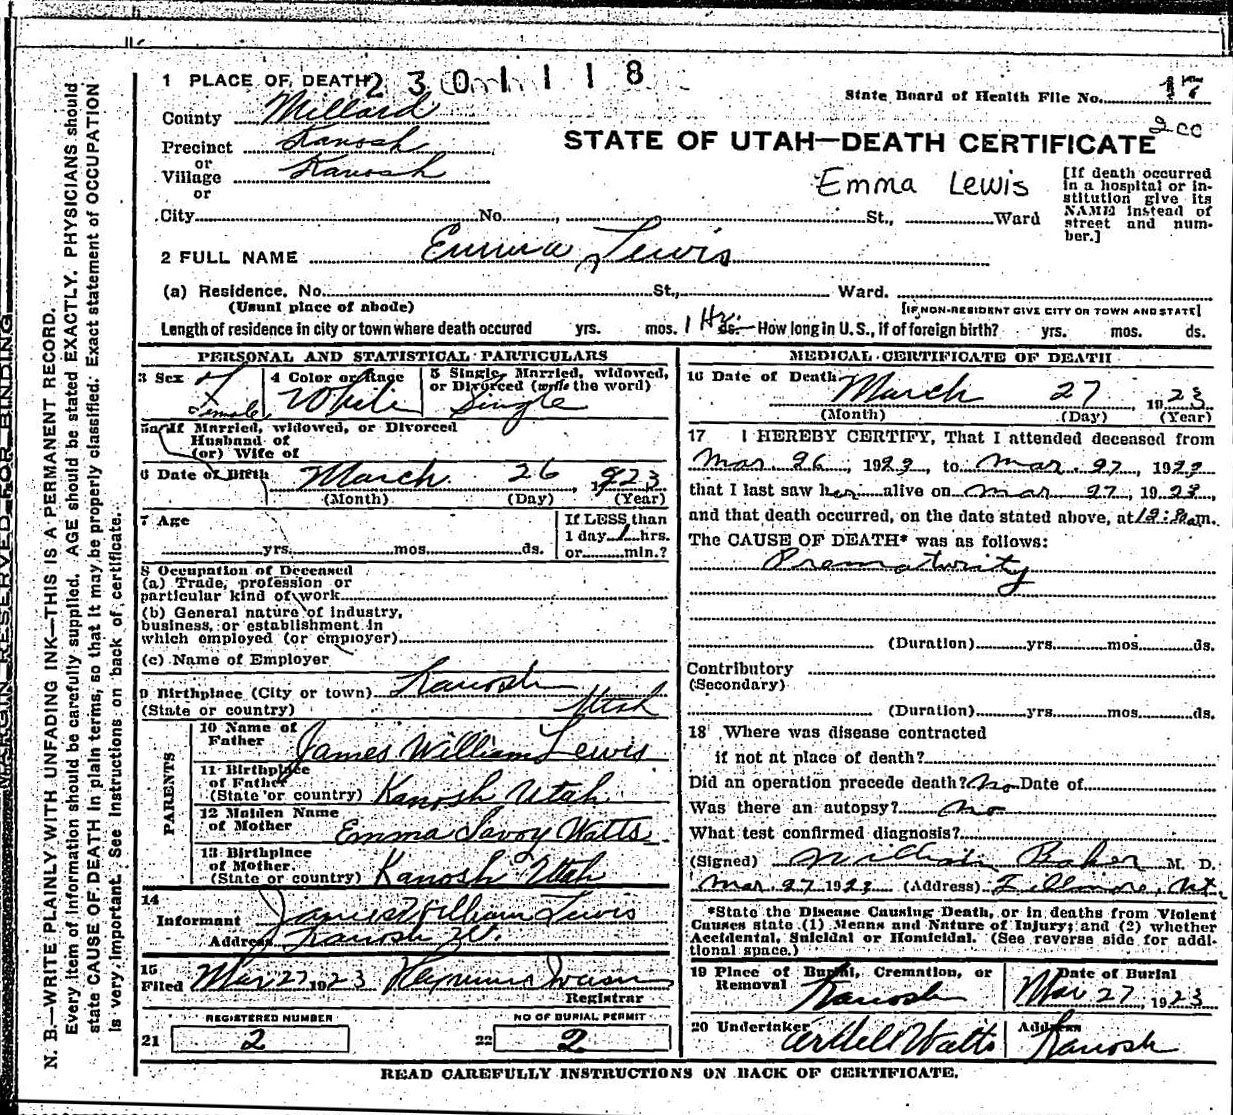 1 PLACE OF DEATH 2301118
County Millard
State Board of Health File No. 17
Precinct Kanosh
200
or
STATE OF UTAH—DEATH CERTIFICATE
Village Kanosh
or
Emma Lewis
[If death occurred in a hospital or in-
stitution give its
NAME instead of
street and num-
ber.]
City No. , St., Ward
2 FULL NAME Emma Lewis
(a) Residence. No. St., Ward.
(Usual place of abode)
[IF NON-RESIDENT GIVE CITY OR TOWN AND STATE]
Length of residence in city or town where death occured yrs. mos. 1 Hr. ds. How long in U. S., if of foreign birth? yrs. mos. ds.
PERSONAL AND STATISTICAL PARTICULARS
3 Sex F
Female
4 Color or Race
White
5 Single, Married, widowed,
or Divorced (write the word)
Single
5a If Married, widowed, or Divorced
Husband of
(or) Wife of
6 Date of Birth March 26 1923
(Month) (Day) (Year)
7 Age
yrs. mos. ds.
If LESS than
1 day 1 hrs.
or min.?
8 Occupation of Deceased
(a) Trade, profession or
particular kind of work
(b) General nature of industry,
business, or establishment in
which employed (or employer)
(c) Name of Employer
9 Birthplace (City or town) Kanosh
(State or country) Utah
PARENTS
10 Name of
Father James William Lewis
11 Birthplace
of Father
(State or country) Kanosh Utah
12 Maiden Name
of Mother Emma Savoy Watts
13 Birthplace
of Mother.
(State or country) Kanosh Utah
14
Informant James William Lewis
Address Kanosh Ut.
15
Filed Mar 27 1923
Registrar
REGISTERED NUMBER
21 2
NO OF BURIAL PERMIT
22 2
MEDICAL CERTIFICATE OF DEATH
16 Date of Death March 27 1923
(Month) (Day) (Year)
17 I HEREBY CERTIFY, That I attended deceased from
Mar 26, 1923, to Mar. 27, 1923,
that I last saw her alive on Mar 27, 1923,
and that death occurred, on the date stated above, at m.
The CAUSE OF DEATH* was as follows:
Prematurity
(Duration) yrs. mos. ds.
Contributory
(Secondary)
(Duration) yrs. mos. ds.
18 Where was disease contracted
if not at place of death?
Did an operation precede death? No Date of
Was there an autopsy? No
What test confirmed diagnosis?
(Signed) William Baker M. D.
Mar 27 1923 (Address) Fillmore, Ut.
*State the Disease Causing Death, or in deaths from Violent
Causes state (1) Means and Nature of Injury; and (2) whether
Accidental, Suicidal or Homicidal. (See reverse side for addi-
tional space.)
19 Place of Burial, Cremation, or
Removal Kanosh
Date of Burial
Mar 27 1923
20 Undertaker Watts
Address
Kanosh
READ CAREFULLY INSTRUCTIONS ON BACK OF CERTIFICATE.
MARGIN RESERVED FOR BINDING
N. B.—WRITE PLAINLY WITH UNFADING INK—THIS IS A PERMANENT RECORD.
Every item of information should be carefully supplied. AGE should be stated EXACTLY. PHYSICIANS should
state CAUSE OF DEATH in plain terms, so that it may be properly classified. Exact statement of OCCUPATION
is very important. See instructions on back of certificate.